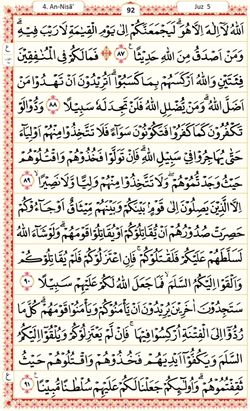 4. An-Nisā' 92 Juz 5
اَللّٰهُ لَاۤ اِلٰهَ اِلَّا هُوَ ؕ لَيَجْمَعَنَّكُمْ اِلٰى يَوْمِ الْقِيٰمَةِ لَا رَيْبَ فِيْهِ ؕ
وَمَنْ اَصْدَقُ مِنَ اللّٰهِ حَدِيْثًا ۸۷ فَمَا لَكُمْ فِى الْمُنٰفِقِيْنَ
فِئَتَيْنِ وَاللّٰهُ اَرْكَسَهُمْ بِمَا كَسَبُوْا ؕ اَتُرِيْدُوْنَ اَنْ تَهْدُوْا مَنْ
اَضَلَّ اللّٰهُ ؕ وَمَنْ يُّضْلِلِ اللّٰهُ فَلَنْ تَجِدَ لَهٗ سَبِيْلًا ۸۸ وَدُّوْا لَوْ
تَكْفُرُوْنَ كَمَا كَفَرُوْا فَتَكُوْنُوْنَ سَوَآءً فَلَا تَتَّخِذُوْا مِنْهُمْ اَوْلِيَآءَ
حَتّٰى يُهَاجِرُوْا فِىْ سَبِيْلِ اللّٰهِ ؕ فَاِنْ تَوَلَّوْا فَخُذُوْهُمْ وَاقْتُلُوْهُمْ
حَيْثُ وَجَدْتُّمُوْهُمْ ۪ وَلَا تَتَّخِذُوْا مِنْهُمْ وَلِيًّا وَّلَا نَصِيْرًا ۸۹
اِلَّا الَّذِيْنَ يَصِلُوْنَ اِلٰى قَوْمٍۭ بَيْنَكُمْ وَبَيْنَهُمْ مِّيْثَاقٌ اَوْ جَآءُوْكُمْ
حَصِرَتْ صُدُوْرُهُمْ اَنْ يُّقَاتِلُوْكُمْ اَوْ يُقَاتِلُوْا قَوْمَهُمْ ؕ وَلَوْ شَآءَ اللّٰهُ
لَسَلَّطَهُمْ عَلَيْكُمْ فَلَقٰتَلُوْكُمْ ۚ فَاِنِ اعْتَزَلُوْكُمْ فَلَمْ يُقَاتِلُوْكُمْ
وَاَلْقَوْا اِلَيْكُمُ السَّلَمَ ۙ فَمَا جَعَلَ اللّٰهُ لَكُمْ عَلَيْهِمْ سَبِيْلًا ۹۰
سَتَجِدُوْنَ اٰخَرِيْنَ يُرِيْدُوْنَ اَنْ يَّاْمَنُوْكُمْ وَيَاْمَنُوْا قَوْمَهُمْ ؕ كُلَّ مَا
رُدُّوْۤا اِلَى الْفِتْنَةِ اُرْكِسُوْا فِيْهَا ۚ فَاِنْ لَّمْ يَعْتَزِلُوْكُمْ وَيُلْقُوْۤا اِلَيْكُمُ
السَّلَمَ وَيَكُفُّوْۤا اَيْدِيَهُمْ فَخُذُوْهُمْ وَاقْتُلُوْهُمْ حَيْثُ
ثَقِفْتُمُوْهُمْ ؕ وَاُولٰٓئِكُمْ جَعَلْنَا لَكُمْ عَلَيْهِمْ سُلْطٰنًا مُّبِيْنًا ۹۱